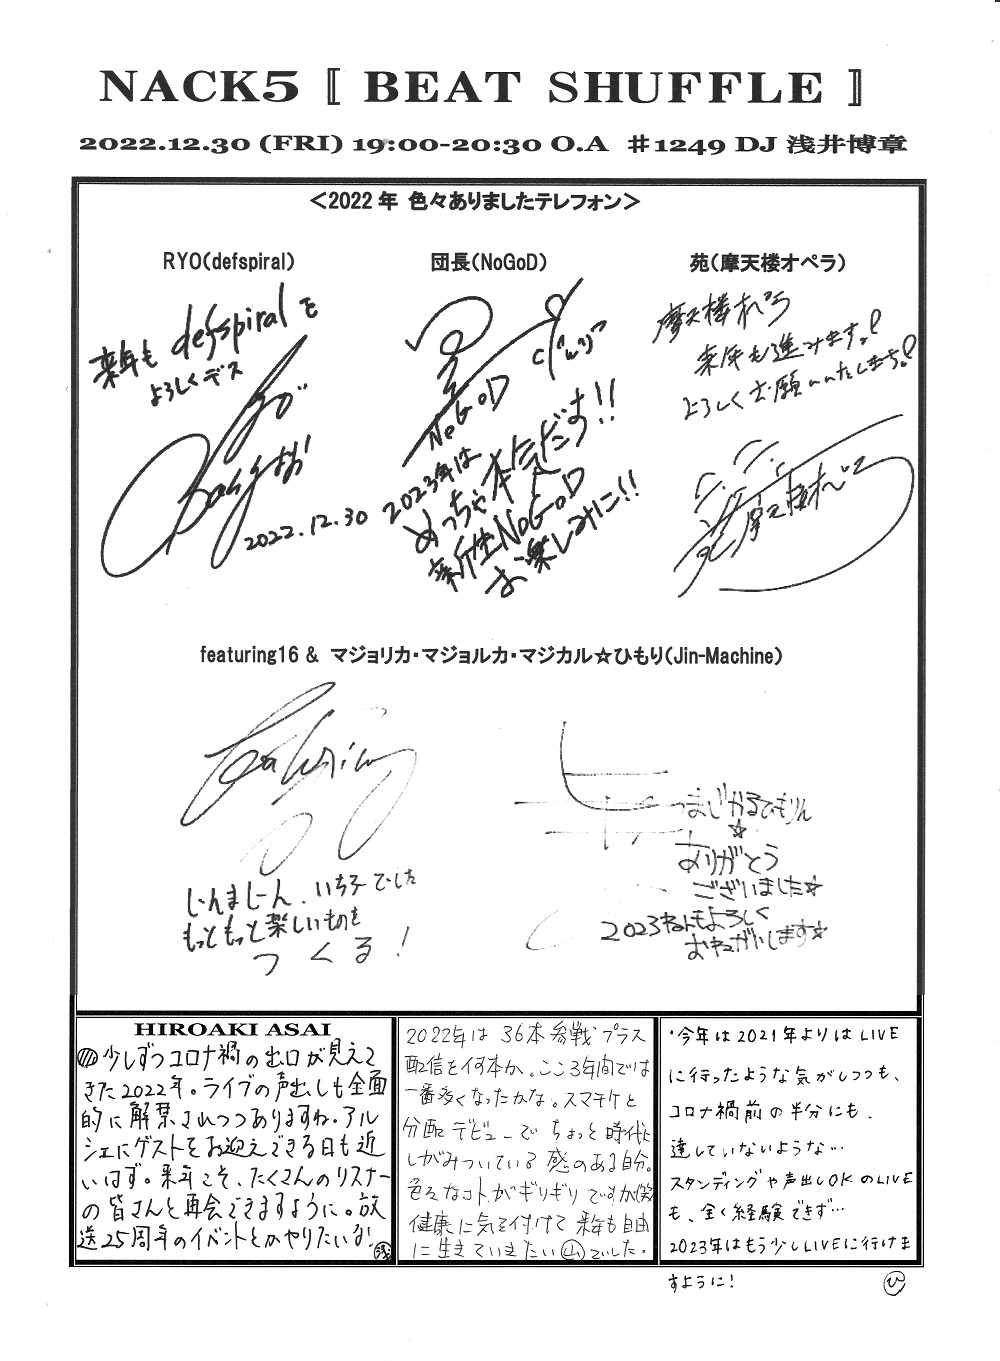 NACK5〚 BEAT SHUFFLE 〛
2022.12.30 (FRI) 19:00-20:30 O.A ＃1249 DJ 浅井博章
＜2022年 色々ありましたテレフォン＞
RYO(defspiral)
来年も defspiralを
よろしくデス
2022.12.30
団長(NoGoD)
NoGoD
2023年は
めっちゃ本気だす!!
新生NoGoD
お楽しみに!!
苑(摩天楼オペラ)
摩天楼オペラ
来年も進みます!
よろしくお願いいたします!
苑 摩天楼オペラ
featuring16 & マジョリカ・マジョルカ・マジカル☆ひもり(Jin-Machine)
featuring
じんましーん、いち子でした
もっともっと楽しいものを
つくる!
まじかるひもりん
☆
ありがとう
ございました☆
2023ねんもよろしく
おねがいします☆
HIROAKI ASAI
少しずつコロナ禍の出口が見えて
きた2022年。ライブの声出しも全面
的に解禁されつつありますね。アル
シェにゲストをお迎えできる日も近
いはず。来年こそ、たくさんのリスナー
の皆さんと再会できますように。放
送25周年のイベントとかやりたいな! 浅
2022年は 36本参戦プラス
配信を何本か。ここ3年間では
一番多くなったかな。スマチケと
分配デビューで ちょっと時代に
しがみついている感のある自分。
色々なコトがギリギリですが笑
健康に気を付けて来年も自由
に生きていきたい 山 でした。
・今年は2021年よりはLIVE
に行ったような気がしつつも、
コロナ禍前の半分にも、
達していないような…
スタンディングや声出しOKのLIVE
も、全く経験できず…
2023年はもう少しLIVEに行けま
すように! ひ